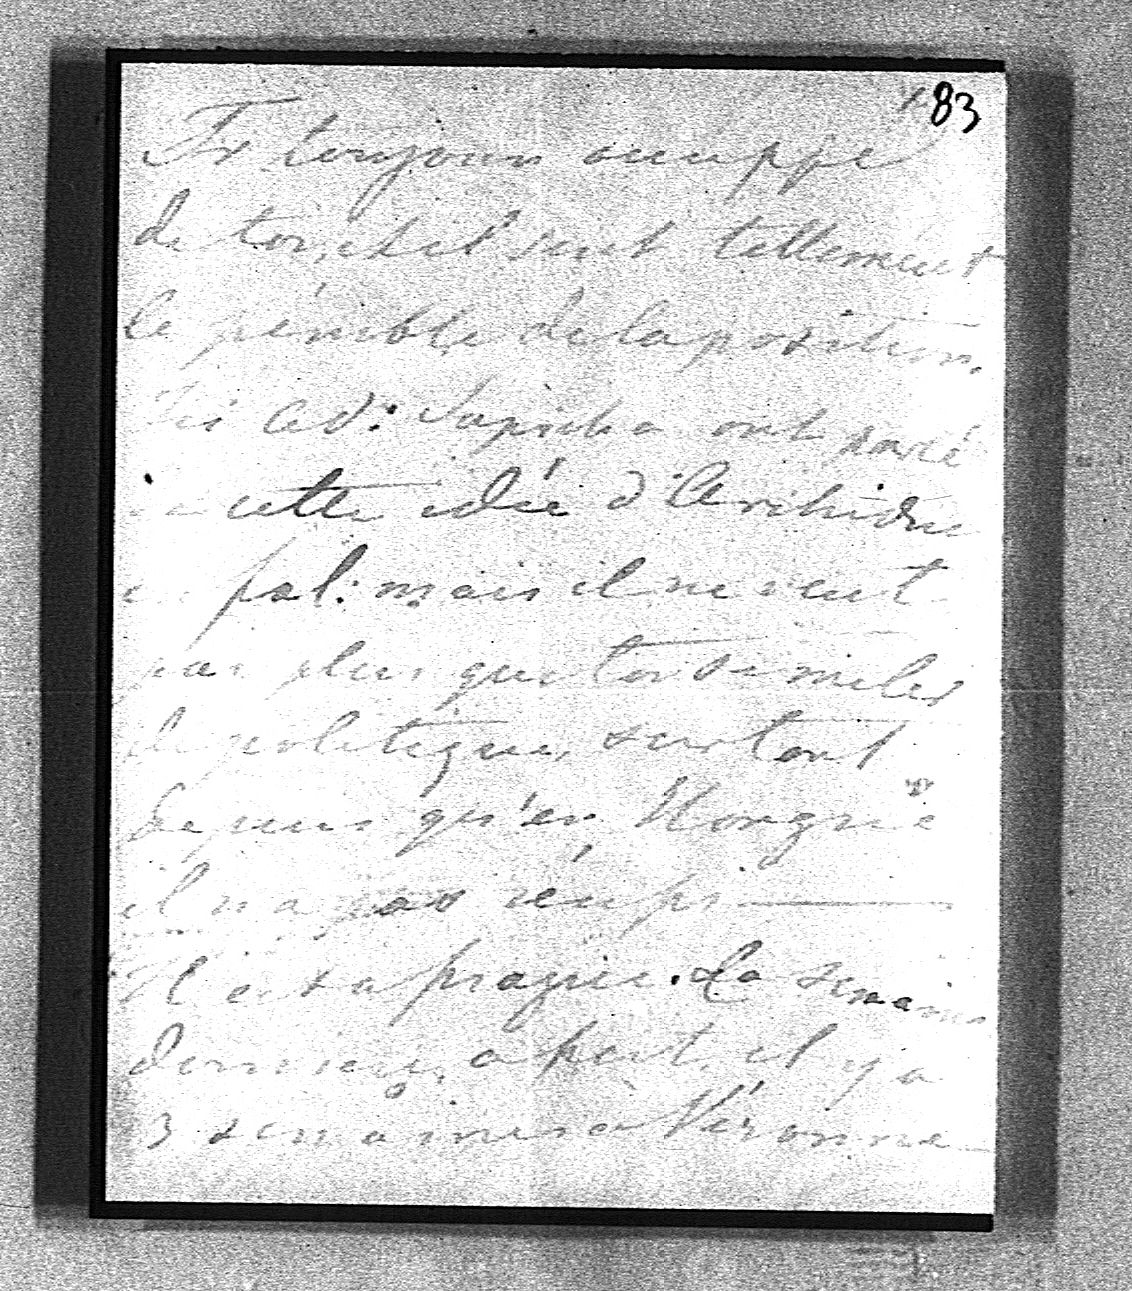 83
Fr toujours occuppé
de toi, et il sent tellement
le pénible de la position.
Ad: Sapieha ont parlé
cette idée d'Archiduc
pol: mais il ne veut
pas plus que toi se mêler
de politique, surtout
depuis qu'en Hongrie
il n'a pas réussi
Il est a prague. La semaine
derniere, a pest, il y a
3 semaines a Véronne